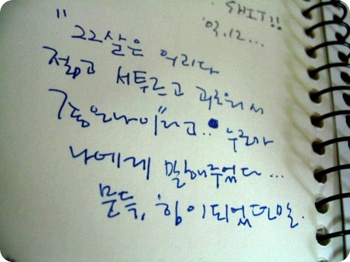 SHIT!!
'03.12...
"22살은 어리다
젊고 서투르고 괴로워서
좋은 나이"라고.. 누군가
나에게 말해주었다...
문득, 힘이 되었던 말.